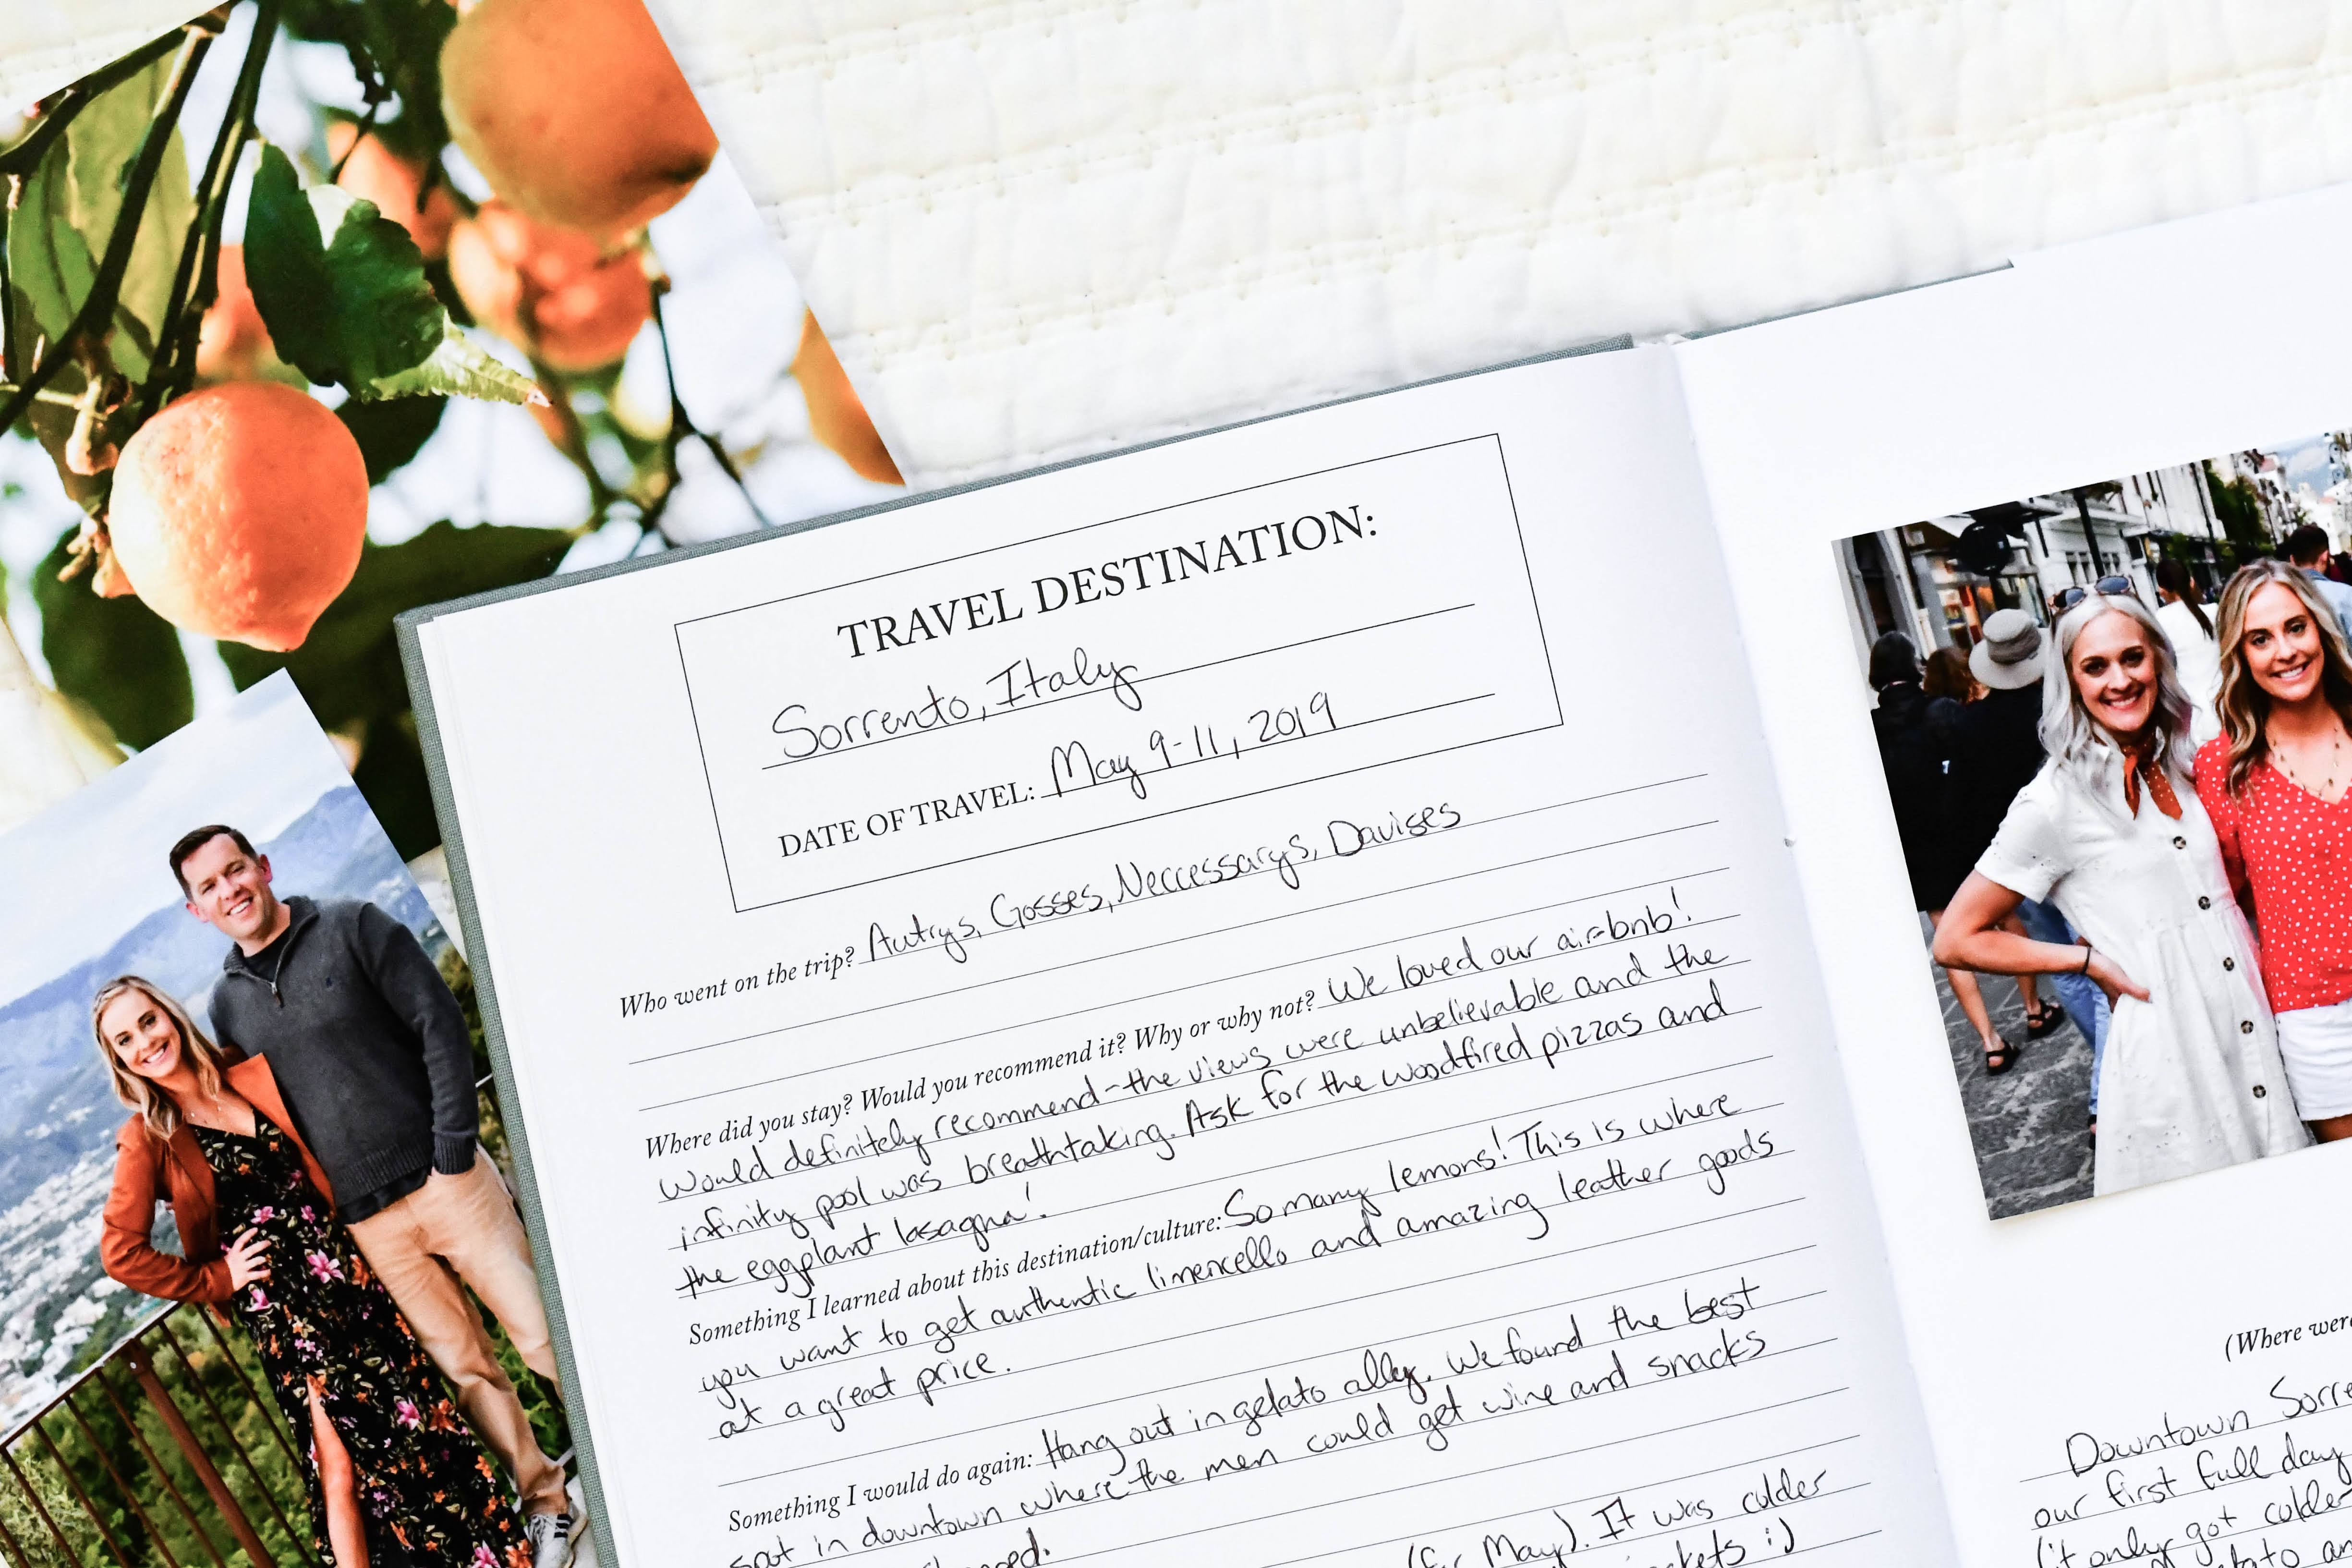 TRAVEL DESTINATION:
Sorrento, Italy
DATE OF TRAVEL: May 9-11, 2019
Who went on the trip? Autrys, Gosses, Neccessarys, Davises
Where did you stay? Would you recommend it? Why or why not? We loved our airbnb!
Would definitely recommend - the views were unbelievable and the
infinity pool was breathtaking. Ask for the woodfired pizzas and
the eggplant lasagna!
Something I learned about this destination/culture: So many lemons! This is where
you want to get authentic limencello and amazing leather goods
at a great price.
Something I would do again: Hang out in gelato alley. We found the best
spot in downtown where the men could get wine and snacks
(for May). It was colder
:)
(Where were
Downtown
our first full day
(it only got colder